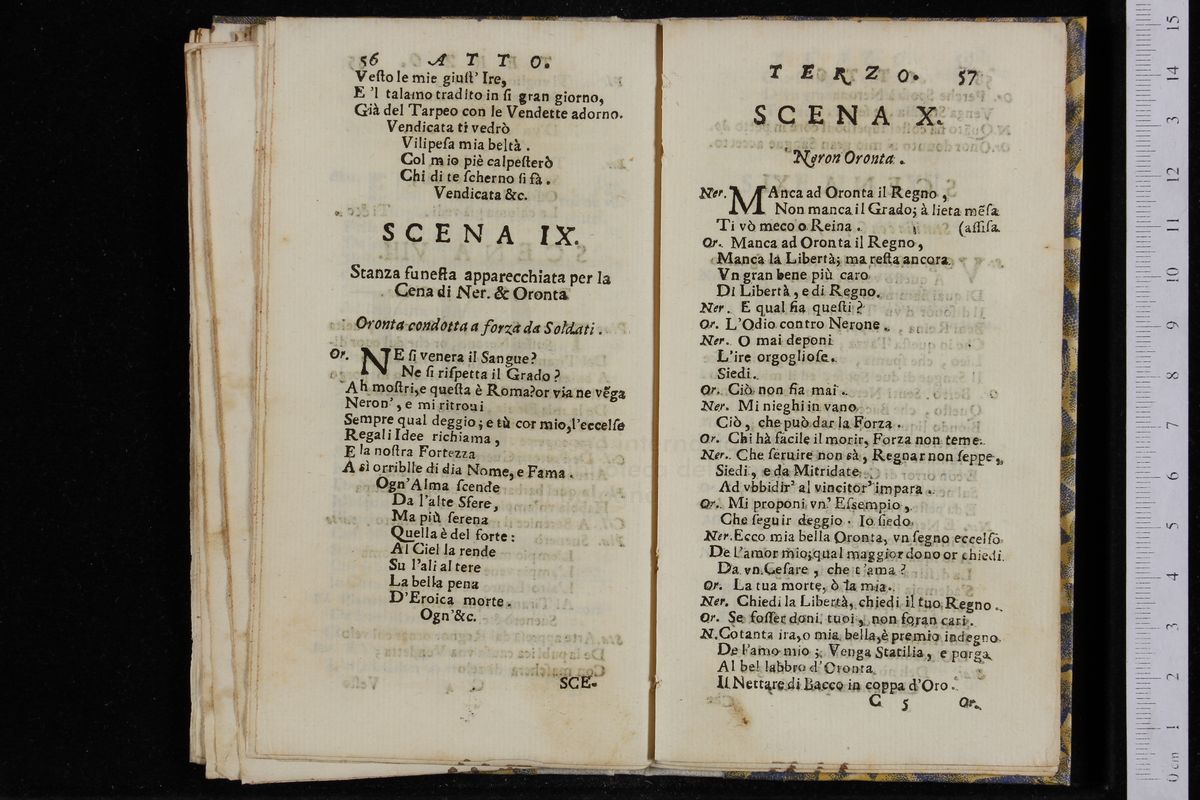 56 ATTO.
Veſto le mie giuſt' Ire,
E 'l talamo tradito in ſi gran giorno,
Già del Tarpeo con le Vendette adorno.
Vendicata ti vedrò
Vilipeſa mia beltà.
Col mio piè calpeſterò
Chi di te ſcherno ſi fà.
Vendicata &c.
SCENA IX.
Stanza funeſta apparecchiata per la
Cena di Ner. & Oronta
Oronta condotta a forza da Soldati.
Or. NE ſi venera il Sangue?
Ne ſi riſpetta il Grado?
Ah moſtri, e queſta è Roma? or via ne vẽga
Neron', e mi ritroui
Sempre qual deggio; e tù cor mio, l'eccelſe
Regali Idee richiama,
E la noſtra Fortezza
A sì orribile di dia Nome, e Fama.
Ogn'Alma ſcende
Da l'alte Sfere,
Ma più ſerena
Quella è del forte:
Al Ciel la rende
Su l'ali altere
La bella pena
D'Eroica morte.
Ogn'&c.
SCE-
TERZO. 57
SCENA X.
Neron Oronta.
Ner. MAnca ad Oronta il Regno,
Non manca il Grado; à lieta mẽſa
Ti vò meco o Reina. (aſſiſa
Or. Manca ad Oronta il Regno,
Manca la Libertà; ma reſta ancora
Vn gran bene più caro
Di Libertà, e di Regno.
Ner. E qual fia queſti?
Or. L'Odio contro Nerone.
Ner. O mai deponi
L'ire orgoglioſe.
Siedi.
Or. Ciò non fia mai.
Ner. Mi nieghi in vano
Ciò, che può dar la Forza.
Or. Chi hà facile il morir, Forza non teme.
Ner. Che ſeruire non sà, Regnar non ſeppe,
Siedi, e da Mitridate
Ad vbbidir' al vincitor' impara.
Or. Mi proponi vn' Eſsempio,
Che ſeguir deggio. Io ſiedo
Ner. Ecco mia bella Oronta, vn ſegno eccelſo
De l'amor mio; qual maggior dono or chiedi
Da vn Ceſare, che t'ama?
Or. La tua morte, ò la mia.
Ner. Chiedi la Libertà, chiedi il tuo Regno.
Or. Se foſſer doni tuoi, non foran cari.
N. Cotanta ira, o mia bella, è premio indegno
De l'amo mio; Venga Statilia, e porga
Al bel labbro d'Oronta
Il Nettare di Bacco in coppa d'Oro.
C 5 Or.